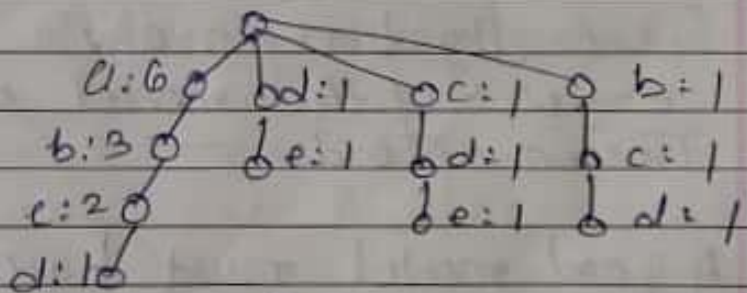 a:6 d:1 c:1 b:1
b:3 e:1 d:1 c:1
c:2 e:1 d:1
d:1